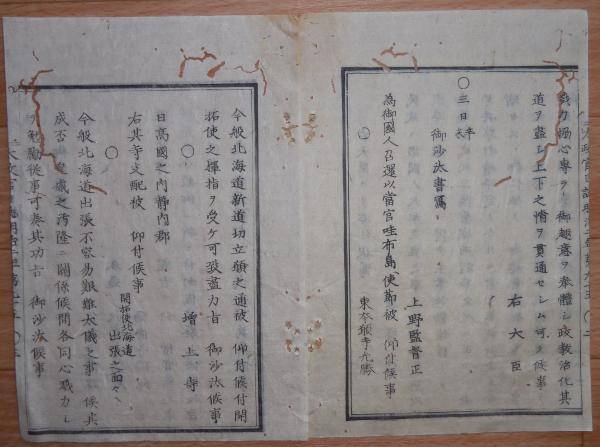 戮力協心専ラ 御趣意ヲ奉體シ政教治化其
道ヲ盡シ上下之情ヲ貫通セシム可キ候事
右大臣
○三日
御沙汰書寫
上野監督正
為御國人召還以當官哇布島ヘ使節被 仰付候事
○
東本願寺光勝
今般北海道新道切立願之通被 仰付候付開
拓使之揮指ヲ受ケ可致盡力旨 御沙汰候事
増上寺
日高國之内静内郡
右其寺支配被 仰付候事
○
開拓使北海道
出張之面々ヘ
今般北海道出張不容易艱難太儀之事ニ候其
成否 皇威之汚隆ニ關係候間各同心戮力シ
勉勵從事可奏其功旨 御沙汰候事